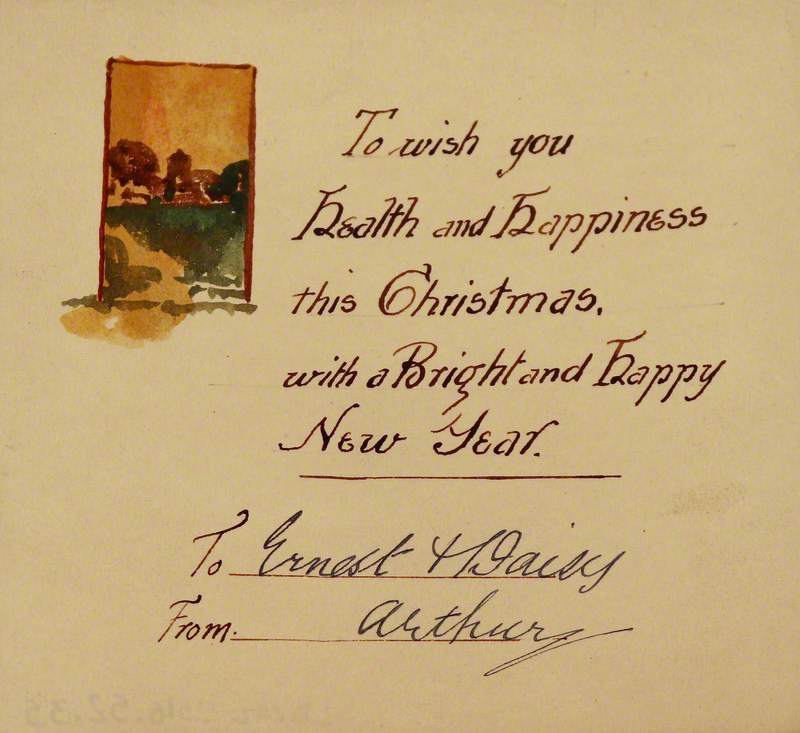 To wish you
Health and Happiness
this Christmas,
with a Bright and Happy
New Year.
To Ernest & Daisy
From. Arthur